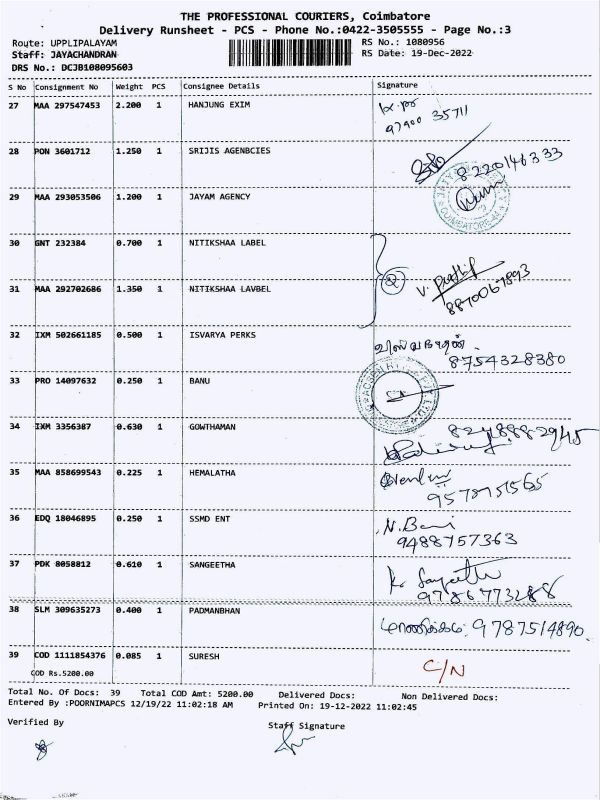 THE PROFESSIONAL COURIERS, Coimbatore
Delivery Runsheet - PCS - Phone No.:0422-3505555 - Page No.:3
Route: UPPLIPALAYAM RS No.: 1080956
Staff: JAYACHANDRAN RS Date: 19-Dec-2022
DRS No.: DCJB108095603
S No Consignment No Weight PCS Consignee Details Signature
27 MAA 297547453 2.200 1 HANJUNG EXIM
97900 35711
28 PON 3601712 1.250 1 SRIJIS AGENBCIES
8220146333
29 MAA 293053506 1.200 1 JAYAM AGENCY
COIMBATORE
30 GNT 232384 0.700 1 NITIKSHAA LABEL
2
31 MAA 292702686 1.350 1 NITIKSHAA LAVBEL
8870067893
32 IXM 502661185 0.500 1 ISVARYA PERKS
8754328380
33 PRO 14097632 0.250 1 BANU
34 IXM 3356387 0.630 1 GOWTHAMAN
35 MAA 858699543 0.225 1 HEMALATHA
36 EDQ 18046895 0.250 1 SSMD ENT
N. Bani
9488757363
37 PDK 8058812 0.610 1 SANGEETHA
K. Sangeetha
9786773288
38 SLM 309635273 0.400 1 PADMANBHAN
9787514890
39 COD 1111854376 0.085 1 SURESH
C/N
COD Rs.5200.00
Total No. Of Docs: 39 Total COD Amt: 5200.00 Delivered Docs: Non Delivered Docs:
Entered By :POORNIMAPCS 12/19/22 11:02:18 AM Printed On: 19-12-2022 11:02:45
Verified By Staff Signature